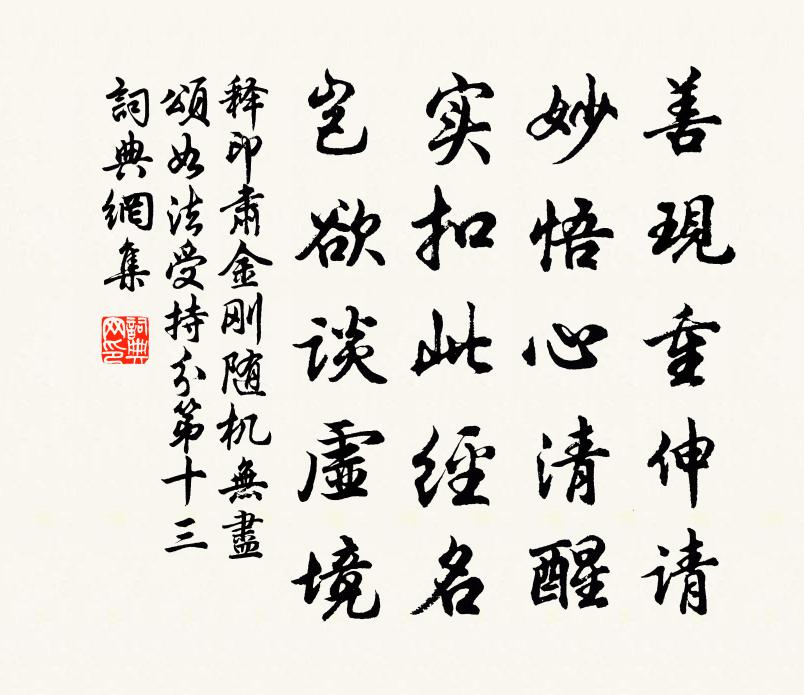 善現重伸请
妙悟心清醒
实扣此經名
岂欲谈虛境
释印肃金刚随机無盡
頌如法受持分第十三
詞典網集
詞典网印